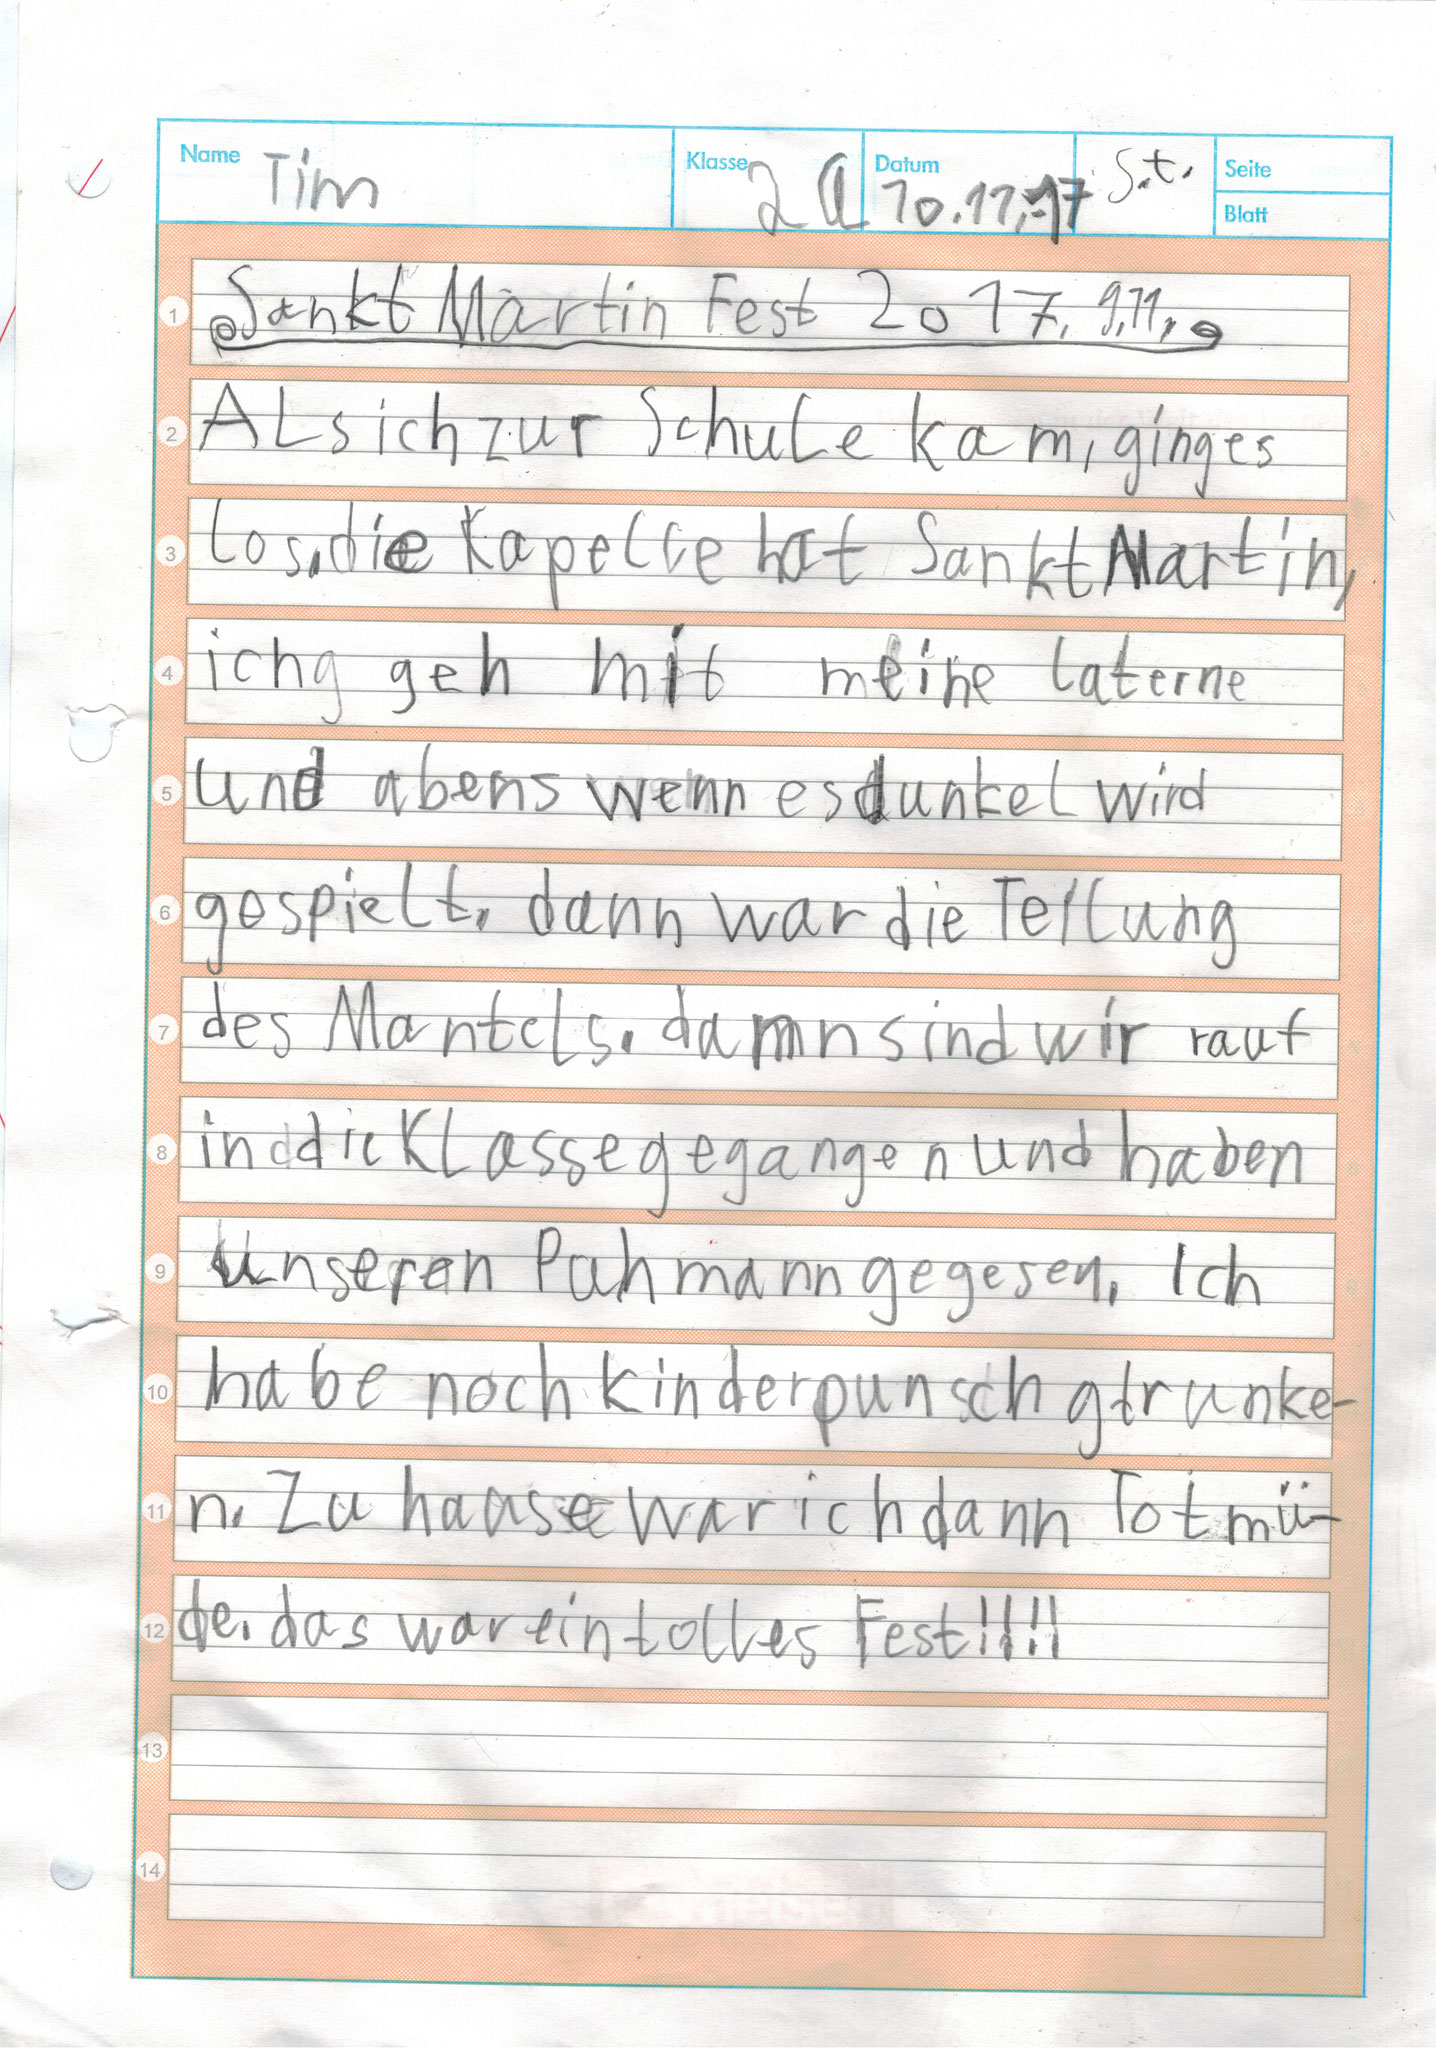 Name Tim Klasse 2a Datum 10.11.17 S.t. Seite
Blatt
1 Sankt Martin Fest 2017. 9.11.
2 ALs ich zur SchuLe kam, ging es
3 los. die Kapelle hat Sankt Martin,
4 ichg geh mit meine laterne
5 und abens wenn es dunkel wird
6 gespielt. dann war die Teilung
7 des Mantels. damnn sind wir rauf
8 in ddie KLasse gegangen und haben
9 unseren Pahmann gegesen. Ich
10 habe noch kinderpunsch gtrunke-
11 n. Zu hause war ich dann Totmü-
12 de. das war ein tolles Fest!!!!
13
14